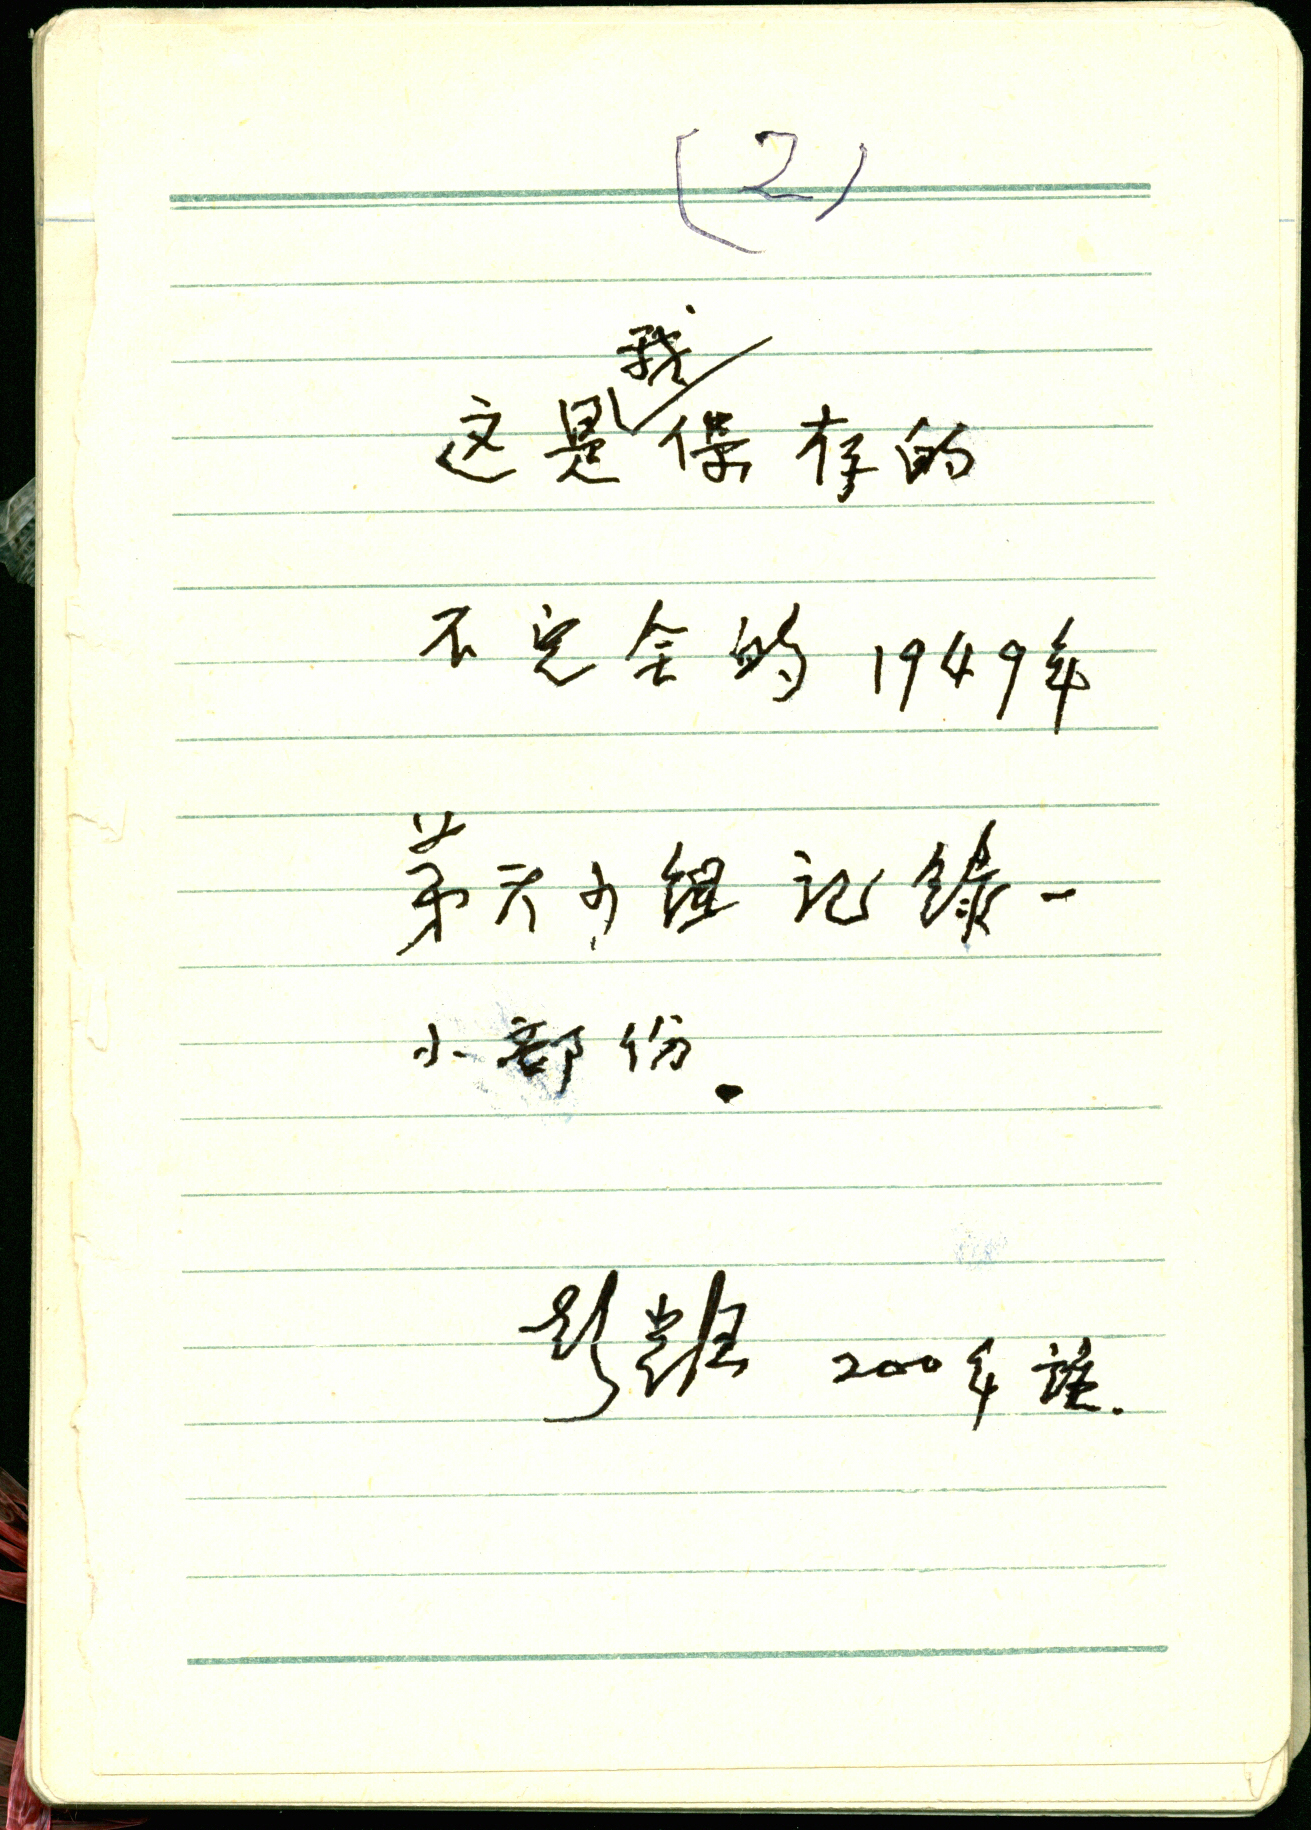 (2)
这是我保存的
不完全的1949年
第六小组 记録一
小部份.
2000年誌.